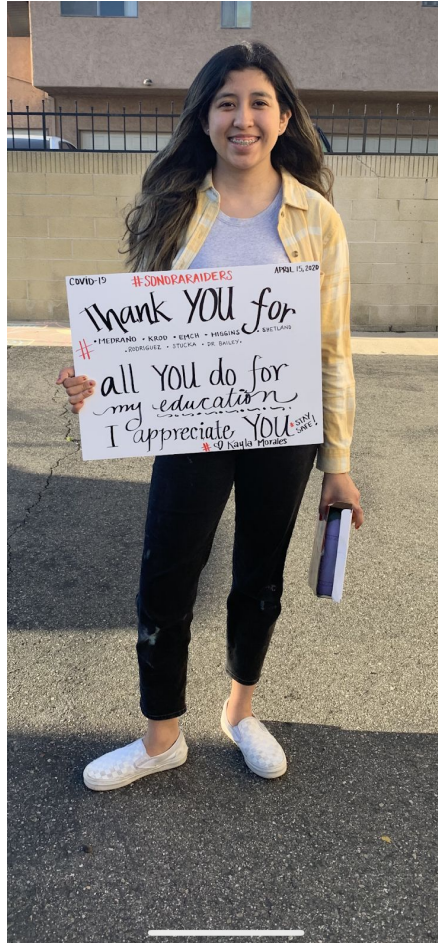 COVID-19 #SONORARAIDERS APRIL 15, 2020
Thank YOU for
# • MEDRANO • KROD • EMCH • HIGGINS • SHETLAND
• RODRIGUEZ • STUCKA • DR BAILEY •
all YOU do for
my education
I appreciate YOU! • STAY SAFE!
# ♡ Kayla Morales